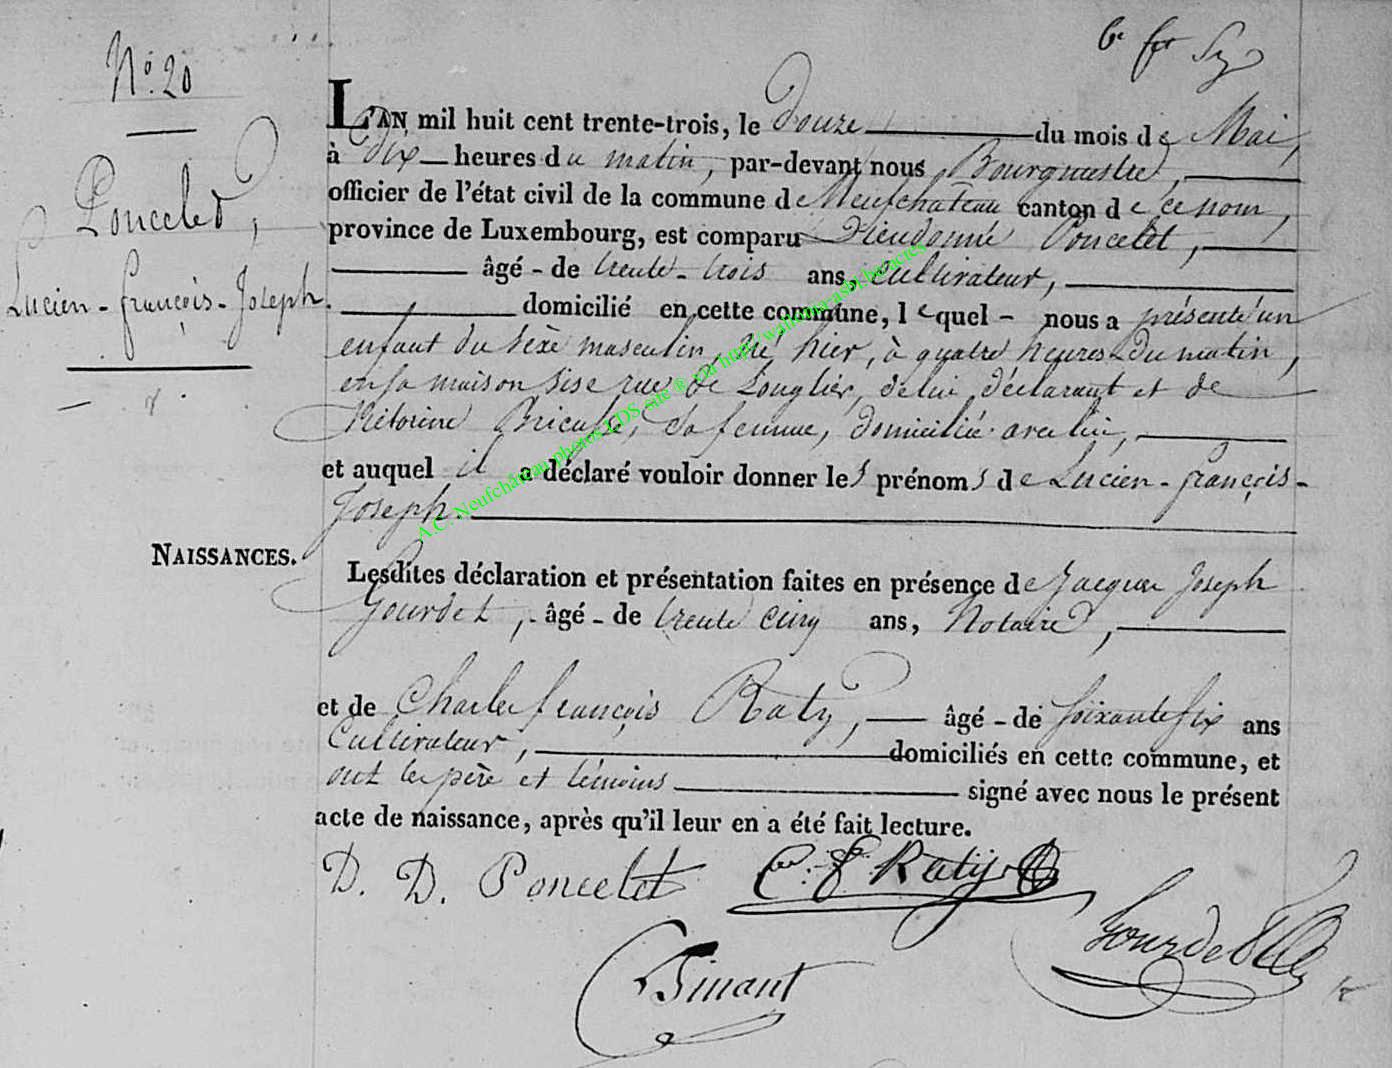 Nº. 20
Poncelet,
Lucien-françois-Joseph.
NAISSANCES.
L'AN mil huit cent trente-trois, le Douze du mois de Mai,
à Dix heures du matin, par-devant nous Bourgmestre,
officier de l'état civil de la commune de Neufchâteau canton de ce nom,
province de Luxembourg, est comparu Dieudonné Poncelet,
âgé de trente-trois ans, Cultivateur,
domicilié en cette commune, lequel nous a présenté un
enfant du sexe masculin, né hier, à quatre heures du matin,
en sa maison sise rue de Longlier, de lui déclarant et de
sa femme, domiciliée avec lui,
et auquel il a déclaré vouloir donner les prénoms de Lucien-françois-
Joseph.
Lesdites déclaration et présentation faites en présence de Jacques Joseph
Gourdet, âgé de trente cinq ans, Notaire,
et de Charles françois Raty, âgé de soixante six ans
Cultivateur, domiciliés en cette commune, et
ont les père et témoins signé avec nous le présent
acte de naissance, après qu'il leur en a été fait lecture.
D. D. Poncelet
C. F. Raty
Gourdet
Dinant
A.C. Neufchâteau photos LDS site ® via http://wallonia.asbl.be/actes